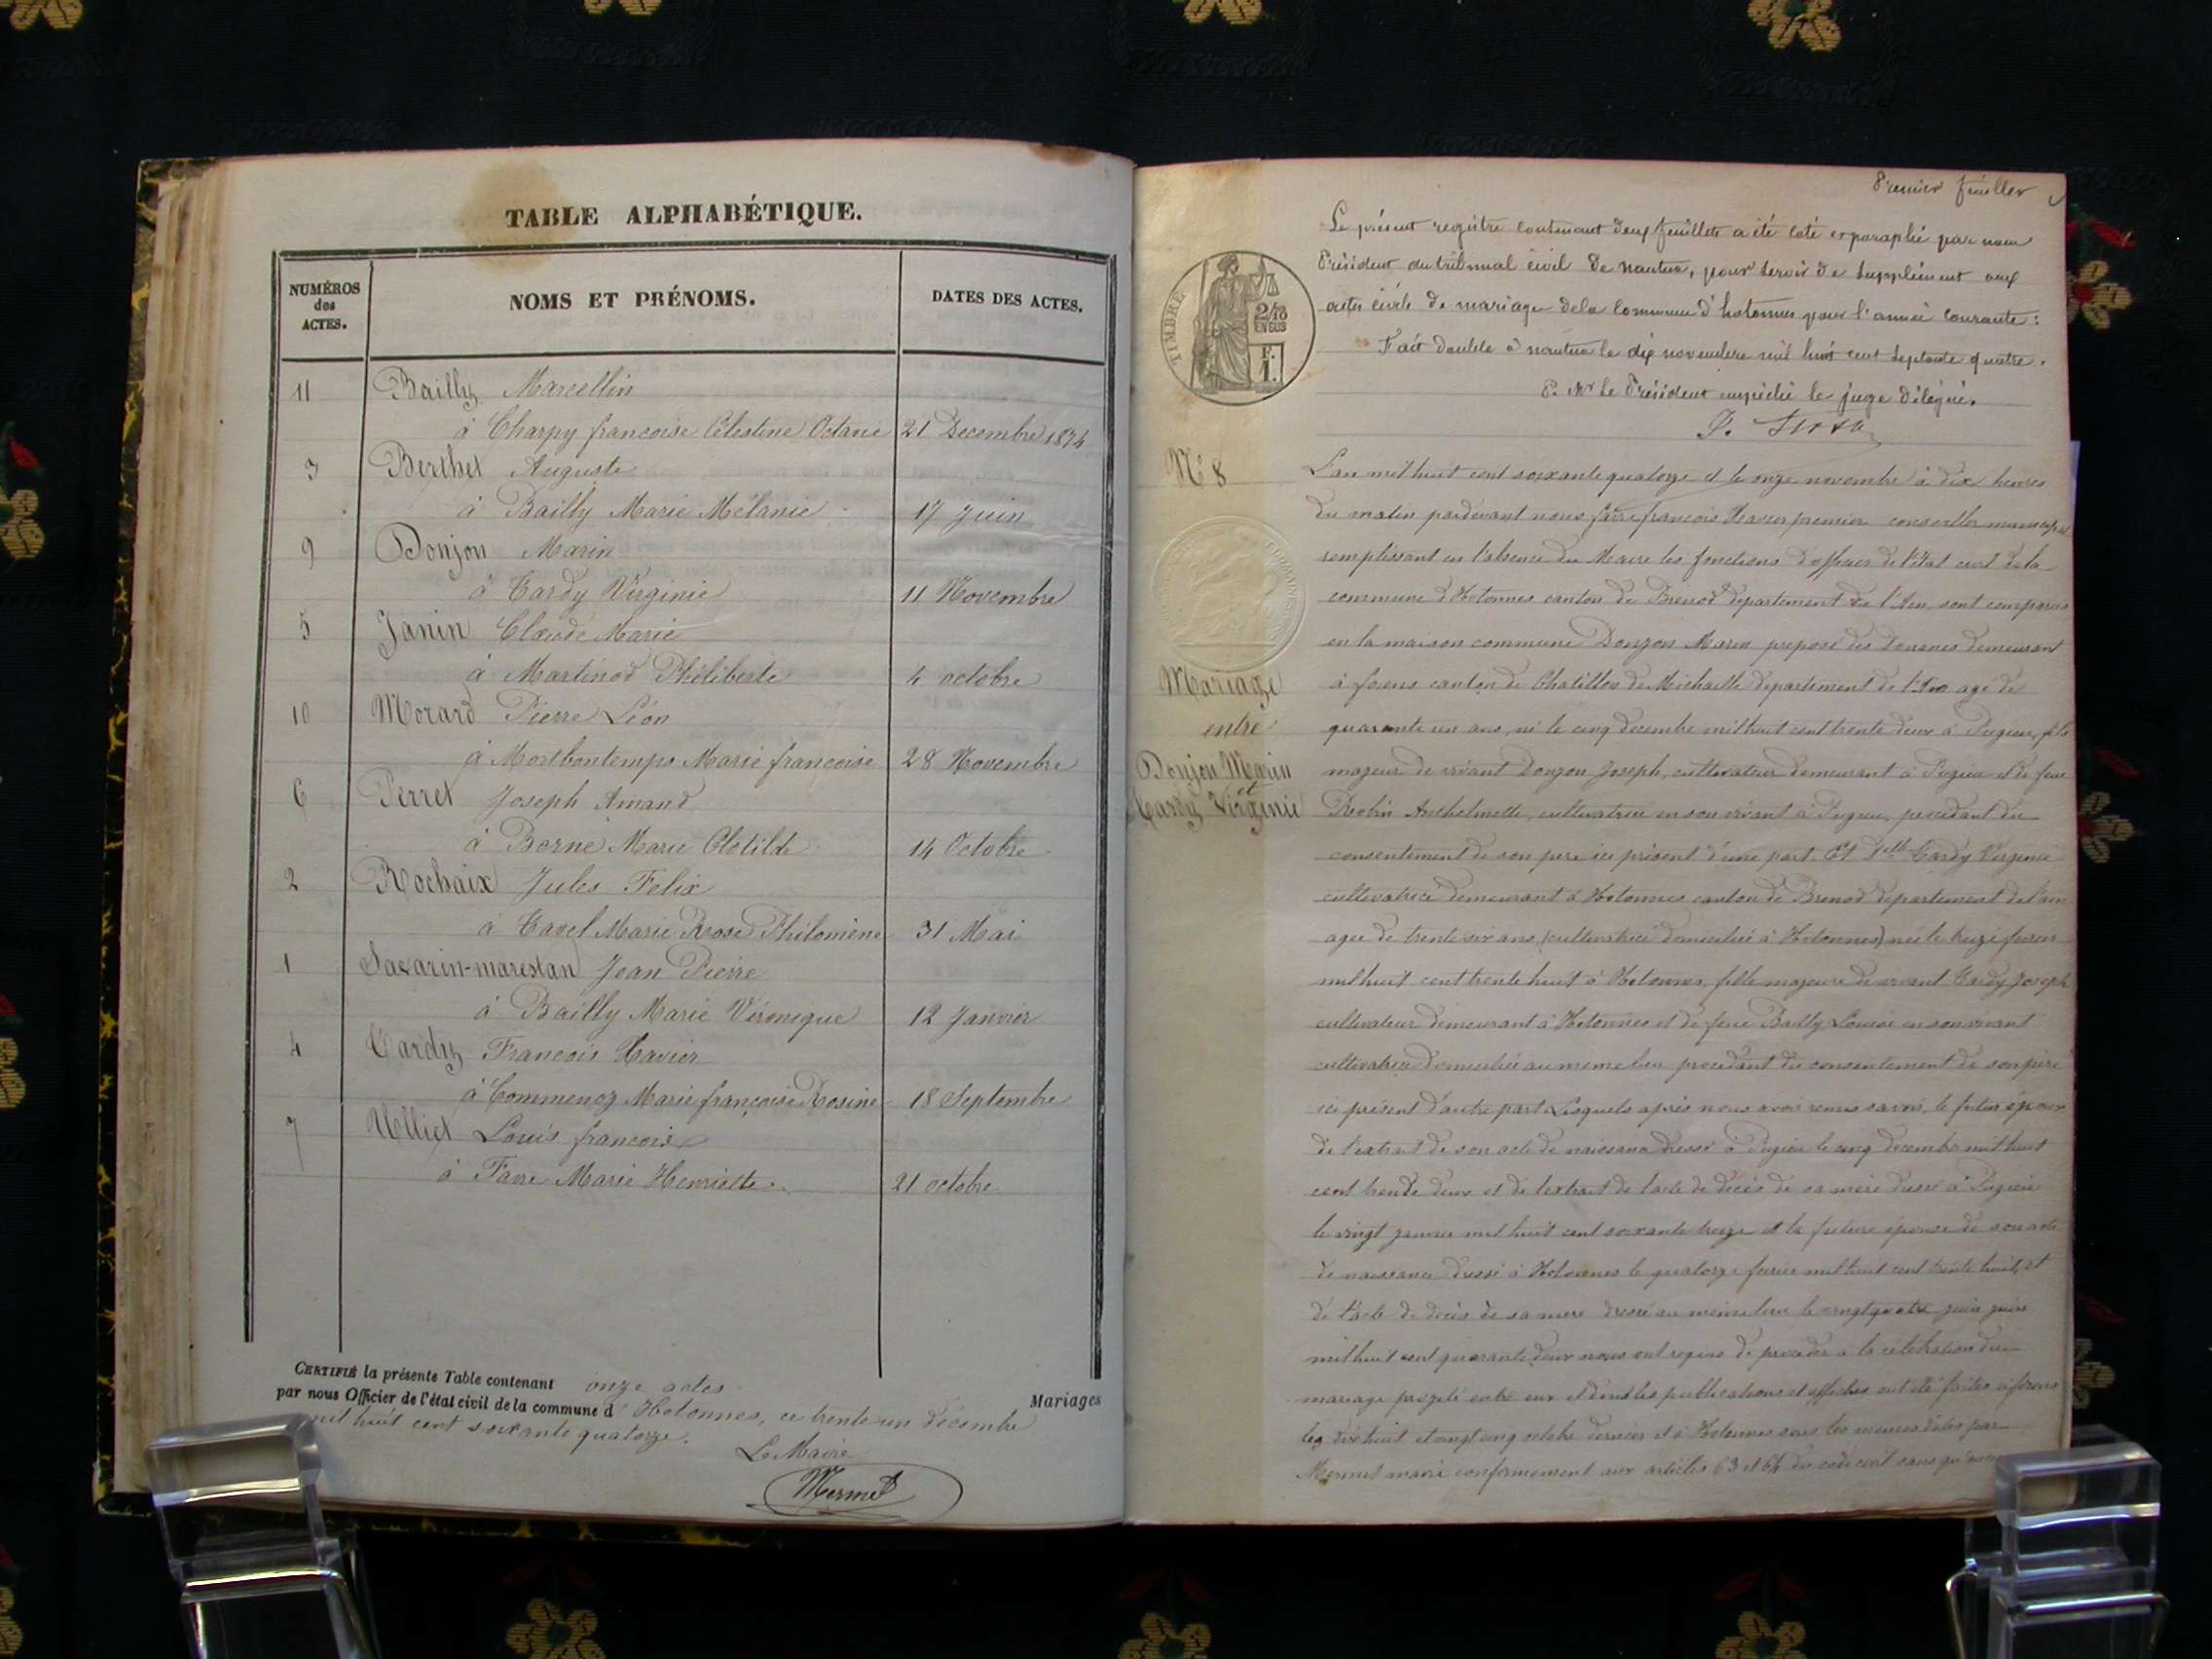 TABLE ALPHABÉTIQUE.
NUMÉROS des ACTES.
NOMS ET PRÉNOMS.
DATES DES ACTES.
11 Bailly Marcellin
à Charpy françoise Célestine Octavie 21 Decembre 1874
3 Berthet Auguste
à Bailly Marie Mélanie 17 Juin
9 Donjon Marin
à Tardy Virginie 11 Novembre
5 Janin Claude Marie
à Martinod Philiberte 4 octobre
10 Morard Pierre Léon
à Montbontemps Marie francoise 28 Novembre
6 Perret Joseph Amand
à Borne Marie Clotilde 14 Octobre
2 Rochaix Jules Felix
à Tavel Marie Rose Philomène 31 Mai
1 Savarin-marestan Jean Pierre
à Bailly Marie Véronique 12 Janvier
4 Tardy Francois Xavier
à Commenoz Marie françoise Rosine 18 Septembre
7 Ulliet Louis francois
à Favre Marie Henriette 21 octobre
CERTIFIÉ la présente Table contenant onze actes
par nous Officier de l'état civil de la commune d' Hotonnes, ce trente un décembre
mil huit cent soixante quatorze.
Mariages
Le Maire
Mermet
Premier feuillet
Le présent registre contenant deux feuillets a été coté et paraphé par nous
Président du tribunal civil de nantua, pour servir de supplément aux
actes civils de mariage de la commune d'hotonnes pour l'année courante :
Fait double à nantua le dix novembre mil huit cent septante quatre.
P. Mr le Président empêché le juge délégué.
TIMBRE
2/10 EN SUS
F. 1.
N° 8
Mariage
entre
Donjon Marin
et
Tardy Virginie
L'an mil huit cent soixante quatorze et le onze novembre à dix heures
du matin pardevant nous favre francois Xavier premier conseiller municipal
remplissant en l'absence du Maire les fonctions d'officier de l'état civil de la
commune d'Hotonnes canton de Brenod departement de l'Ain, sont comparus
en la maison commune Donjon Marin preposé des douanes demeurant
à forens canton de Chatillon de Michaille departement de l'Ain agé de
quarante un ans, né le cinq decembre mil huit cent trente deux à Pugieu, fils
majeur de vivant Donjon Joseph, cultivateur demeurant à Pugieu et de feue
Robin Anthelmette, cultivatrice en son vivant à Pugieu, procedant du
consentement de son pere ici présent d'une part. Et Dlle Tardy Virginie
cultivatrice demeurant à Hotonnes canton de Brenod departement de l'ain
agée de trente six ans, (cultivatrice domiciliée à Hotonnes) née le treize fevrier
mil huit cent trente huit à Hotonnes, fille majeure de vivant Tardy Joseph
cultivateur demeurant à Hotonnes et de feue Bailly Louise en son vivant
cultivatrice domiciliée au meme lieu procedant du consentement de son père
ici présent d'autre part Lesquels après nous avoir remis savoir, le futur époux
de l'extrait de son acte de naissance dressé à Pugieu le cinq decembre mil huit
cent trente deux et de l'extrait de l'acte de décès de sa mère dressé à Pugieu
le vingt janvier mil huit cent soixante treize et la future épouse de son acte
de naissance dressé à Hotonnes le quatorze fevrier mil huit cent trente huit, et
de l'acte de décès de sa mere dressé au meme lieu le vingt quatre juin
mil huit cent quarante deux nous ont requis de proceder à la célébration du
mariage projeté entre eux et dont les publications et affiches ont été faites à forens
les dix huit et vingt cinq octobre dernier et à Hotonnes sous les memes dates par
Mermet maire conformement aux articles 63 et 64 du code civil sans qu'aucune